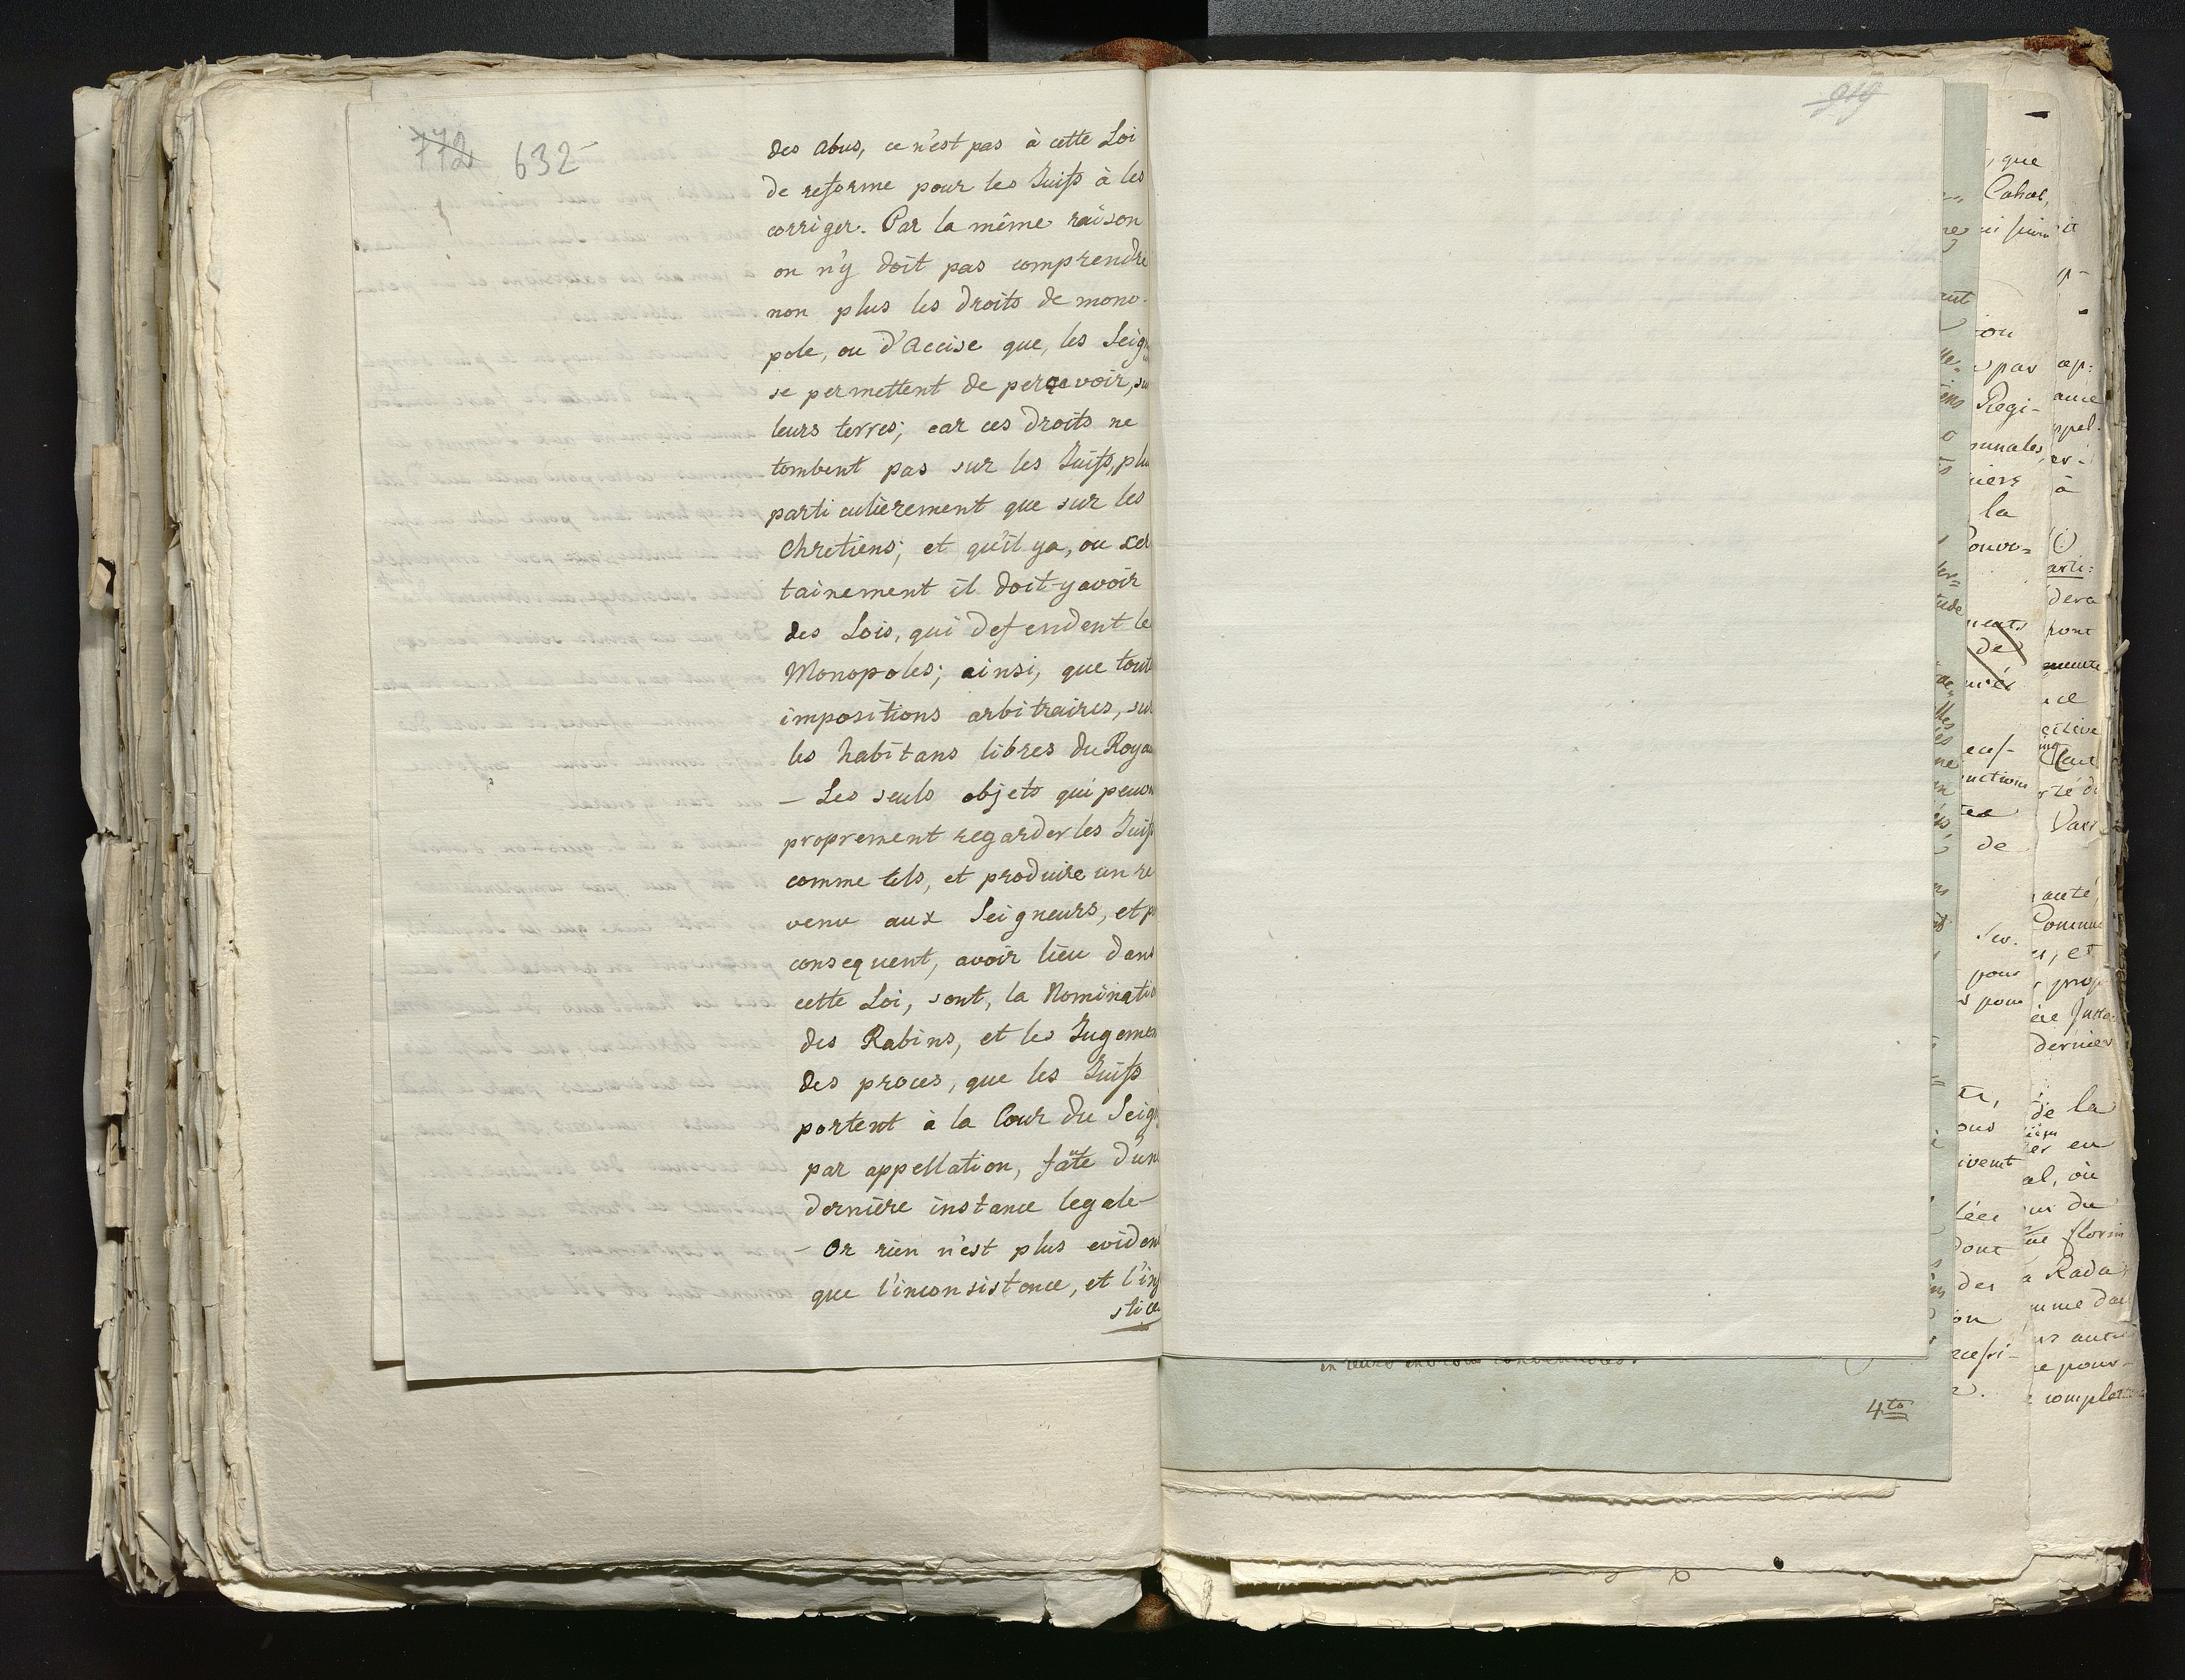 772 632
des abus, ce n'est pas à cette Loi
de reforme pour les Juifs à les
corriger. Par la même raison
on n'y doit pas comprendre
non plus les droits de mono-
pole, ou d'Accise que, les Seig
se permettent de perçevoir, su
leurs terres; car ces droits ne
tombent pas sur les Juifs, plu
particulièrement que sur les
Chretiens; et qu'il y a, ou cer
tainement il doit y avoir
des Lois, qui defendent le
Monopoles; ainsi, que tout
impositions arbitraires, sur
les habitans libres du Royau
- Les seuls objets qui peuv
proprement regarder les Juifs
comme tels, et produire un re
venu aux Seigneurs, et p
consequent, avoir lieu dans
cette Loi, sont, la Nominatio
des Rabins, et les Jugemen
des proces, que les Juifs
portent à la Cour du Seig
par appellation, faute d'un
dernière instance legale-
- Or rien n'est plus evident
que l'inconsistence, et l'inj
stice
919
4to
, que
Cahal,
ou
pas
Regi-
munales,
la
de
de
pour
pour
dont
des
à
dera
Vars
et
dernier
de la
en
al, où
du
florin
a Rada